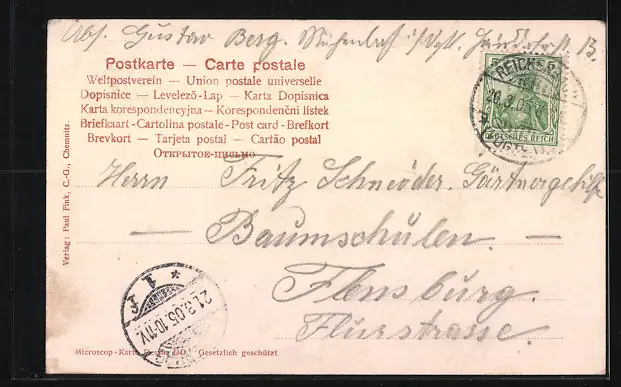 Abs. Gustav Berg. i/Vgtl. 13.
Postkarte — Carte postale
Weltpostverein — Union postale universelle
Dopisnice — Levelező-Lap — Karta Dopisnica
Karta korespondencyjna — Korespondenční lístek
Briefkaart - Cartolina postale - Post card - Brefkort
Brevkort — Tarjeta postal — Cartão postal
Открытое-письмо
5
REICHS
20.3.05
DEUTSCHES REICH
Herrn Fritz Schneider. Gärtnergehilfe
— Baumschulen. —
Flensburg.
Flurstrasse.
Verlag: Paul Fink, C.-G., Chemnitz.
21.3.05.10-11V.
Microscop-Karte Gesetzlich geschützt